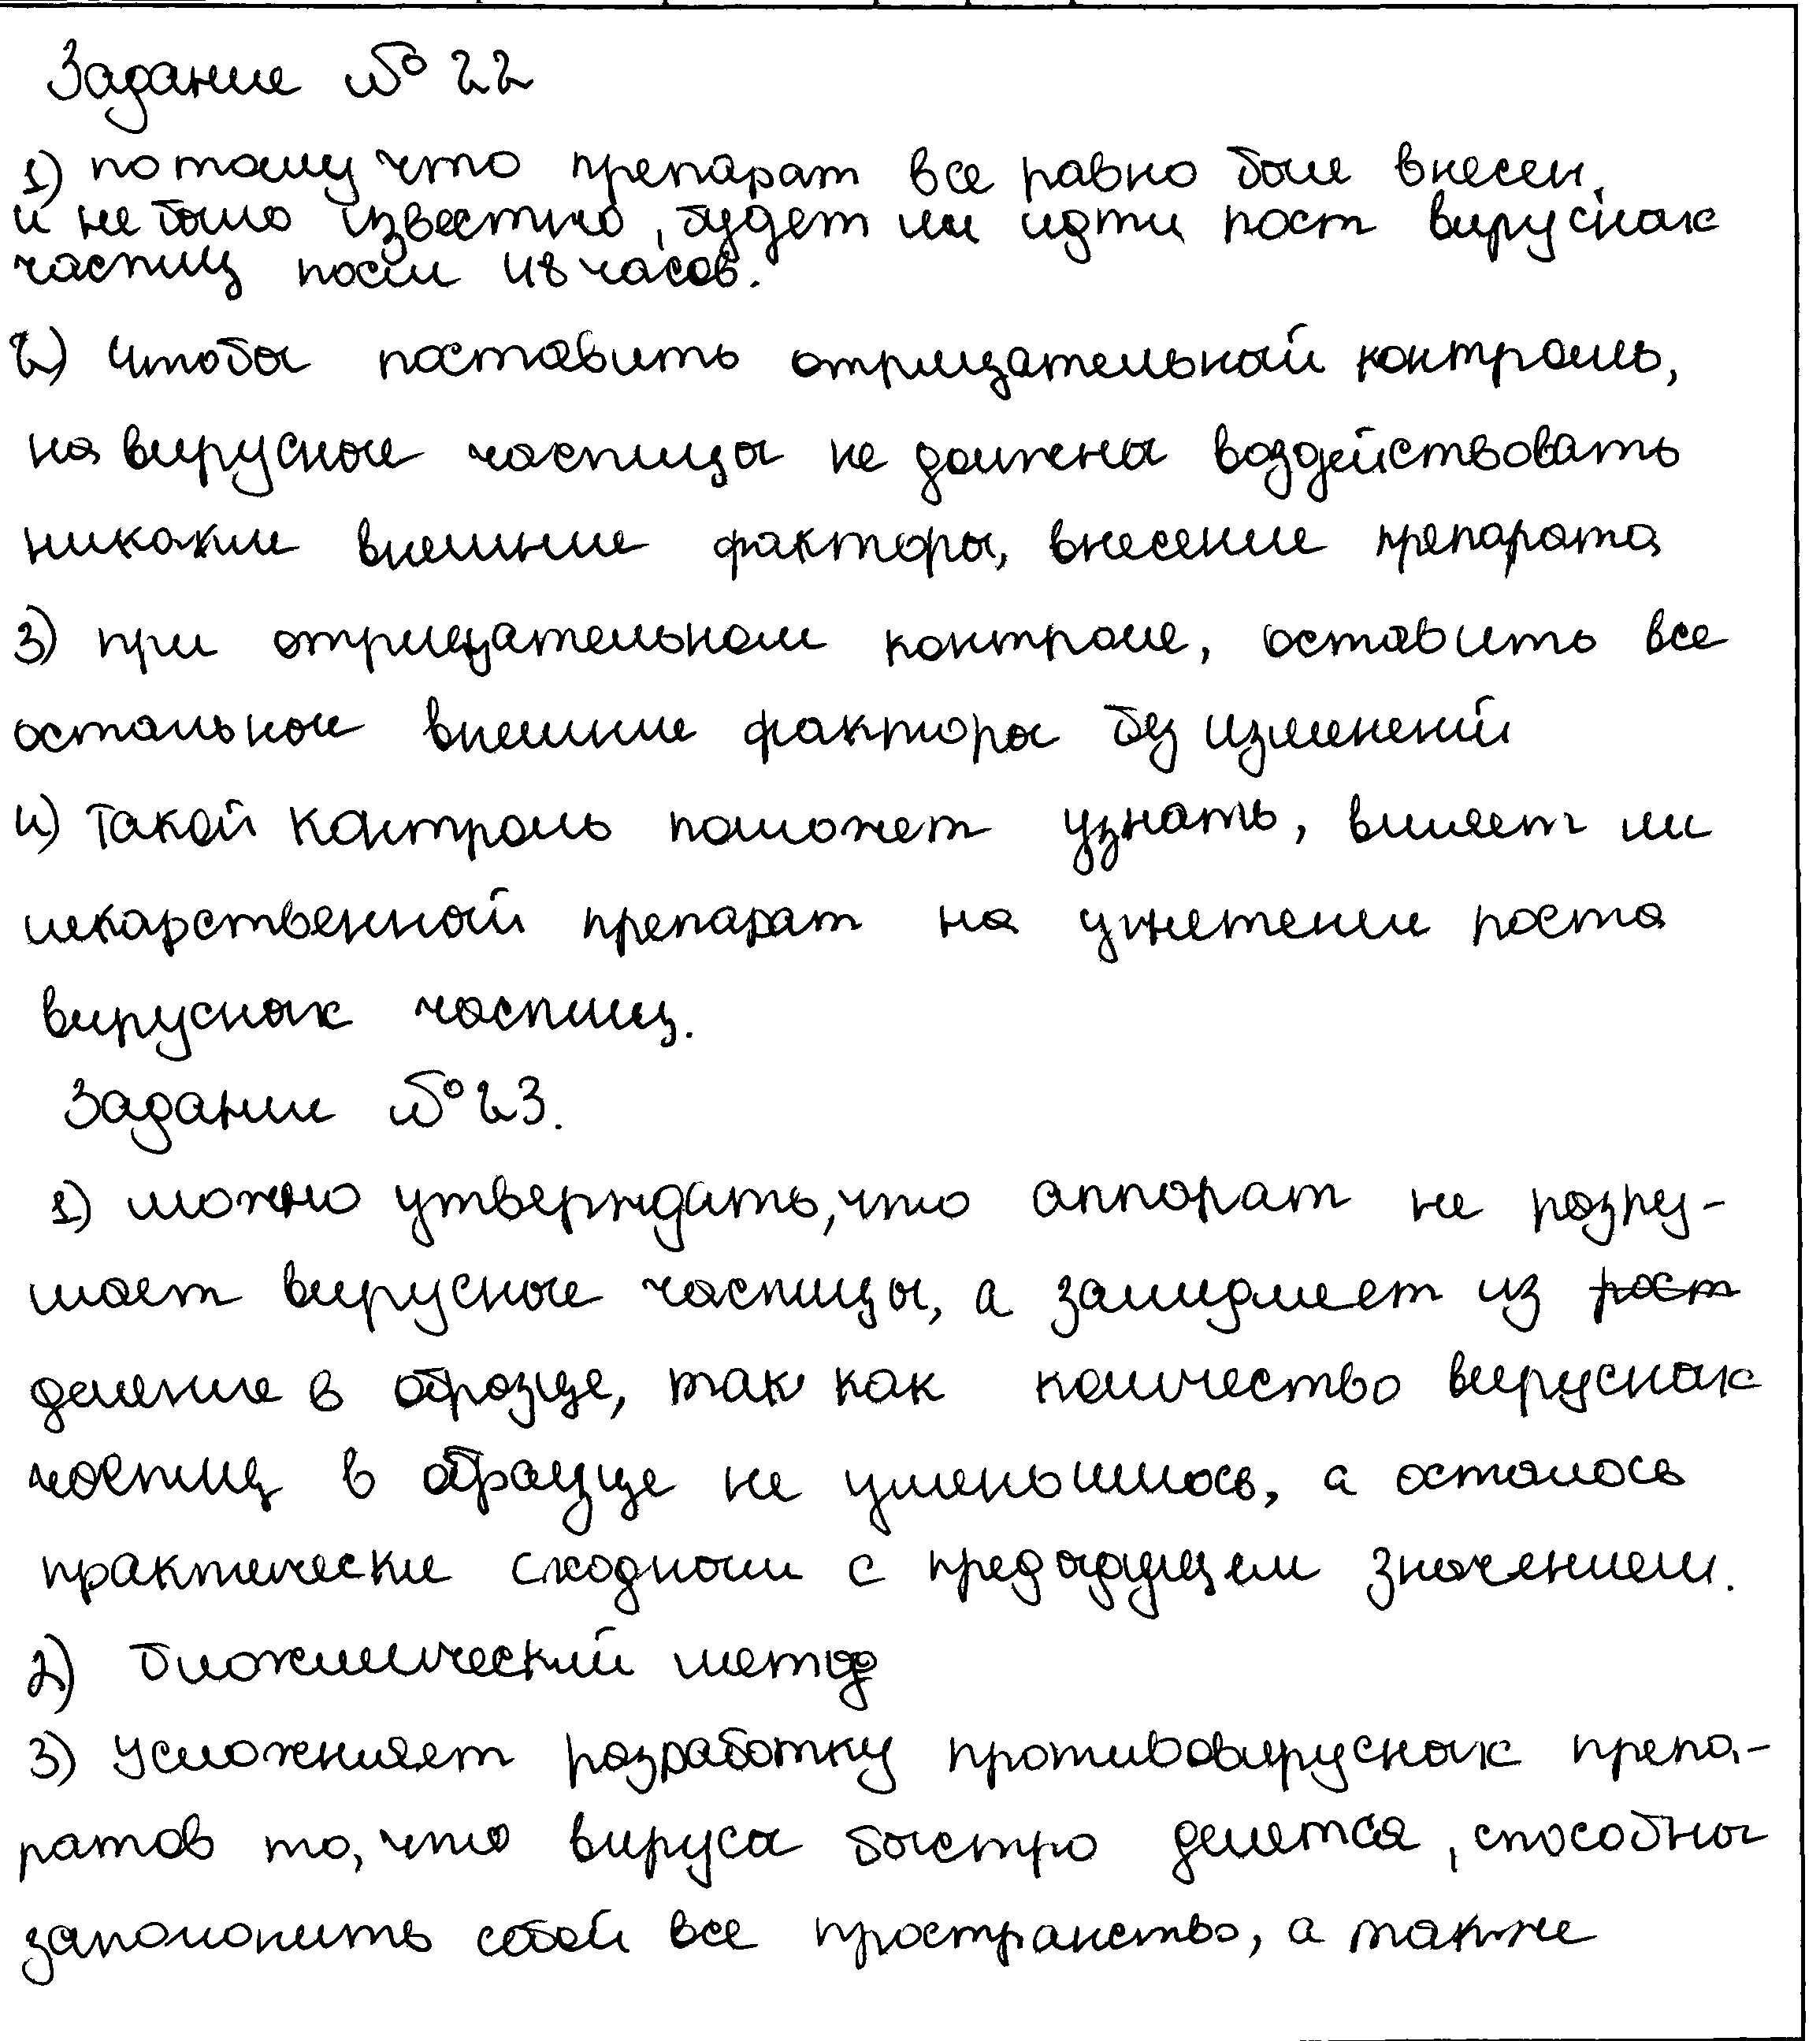 Задание № 22
1) потому что препарат все равно был внесен,
и не было известно, будет ли идти рост вирусных
частиц после 48 часов.
2) Чтобы поставить отрицательный контроль,
на вирусные частицы не должны воздействовать
никакие внешние факторы, внесение препарата
3) при отрицательном контроле, оставить все
остальные внешние факторы без изменений
4) Такой контроль поможет узнать, влияет ли
лекарственный препарат на угнетение роста
вирусных частиц.
Задание № 23.
1) можно утверждать, что аппорат не разру-
шает вирусные частицы, а замидляет их рост
деление в образце, так как количество вирусных
частиц в образце не уменьшилось, а осталось
практически сходным с предыдущем значением.
2) биохимический метод
3) Усложняет разработку противовирусных препа-
ратов то, что вирусы быстро делятся, способны
заполонить собой все пространство, а также